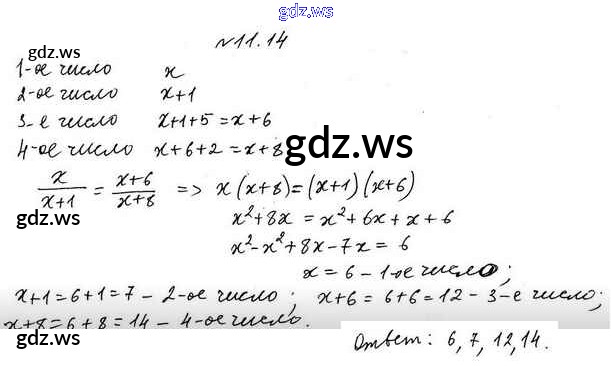 gdz.ws
№11.14
gdz.ws
1-ое число x
2-ое число x+1
3-е число x+1+5=x+6
4-ое число x+6+2=x+8
gdz.ws
x/(x+1) = (x+6)/(x+8) => x(x+8)=(x+1)(x+6)
gdz.ws
x²+8x = x²+6x+x+6
x²-x²+8x-7x = 6
x=6 – 1-ое число;
x+1=6+1=7 – 2-ое число; x+6=6+6=12 – 3-е число;
x+8=6+8=14 – 4-ое число.
gdz.ws
gdz.ws
Ответ: 6,7,12,14.
gdz.ws